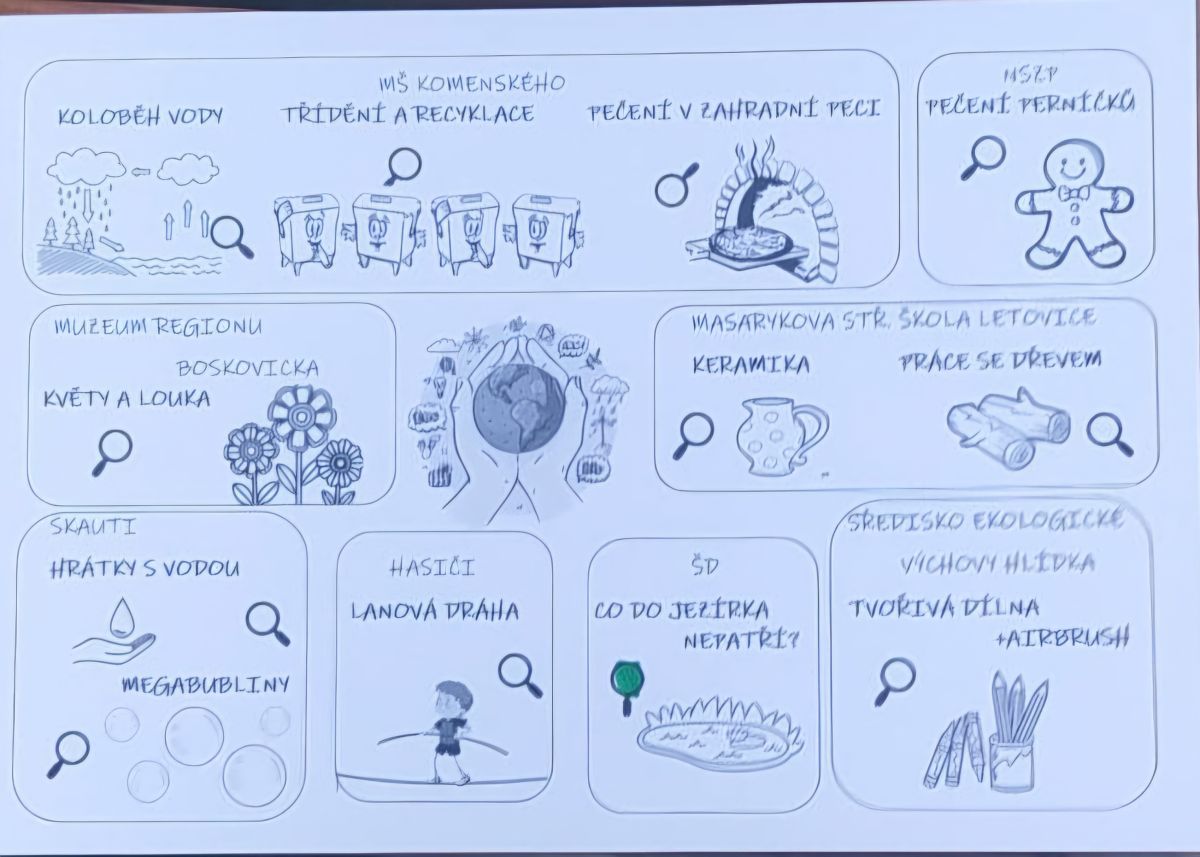 MŠ KOMENSKÉHO
KOLOBĚH VODY
TŘÍDĚNÍ A RECYKLACE
PEČENÍ V ZAHRADNÍ PECI
MSZP
PEČENÍ PERNÍČKŮ
MUZEUM REGIONU
BOSKOVICKA
KVĚTY A LOUKA
MASARYKOVA STŘ. ŠKOLA LETOVICE
KERAMIKA
PRÁCE SE DŘEVEM
SKAUTI
HRÁTKY S VODOU
MEGABUBLINY
HASIČI
LANOVÁ DRÁHA
ŠD
CO DO JEZÍRKA
NEPATŘÍ?
STŘEDISKO EKOLOGICKÉ
VÝCHOVY HLÍDKA
TVOŘIVÁ DÍLNA
+AIRBRUSH